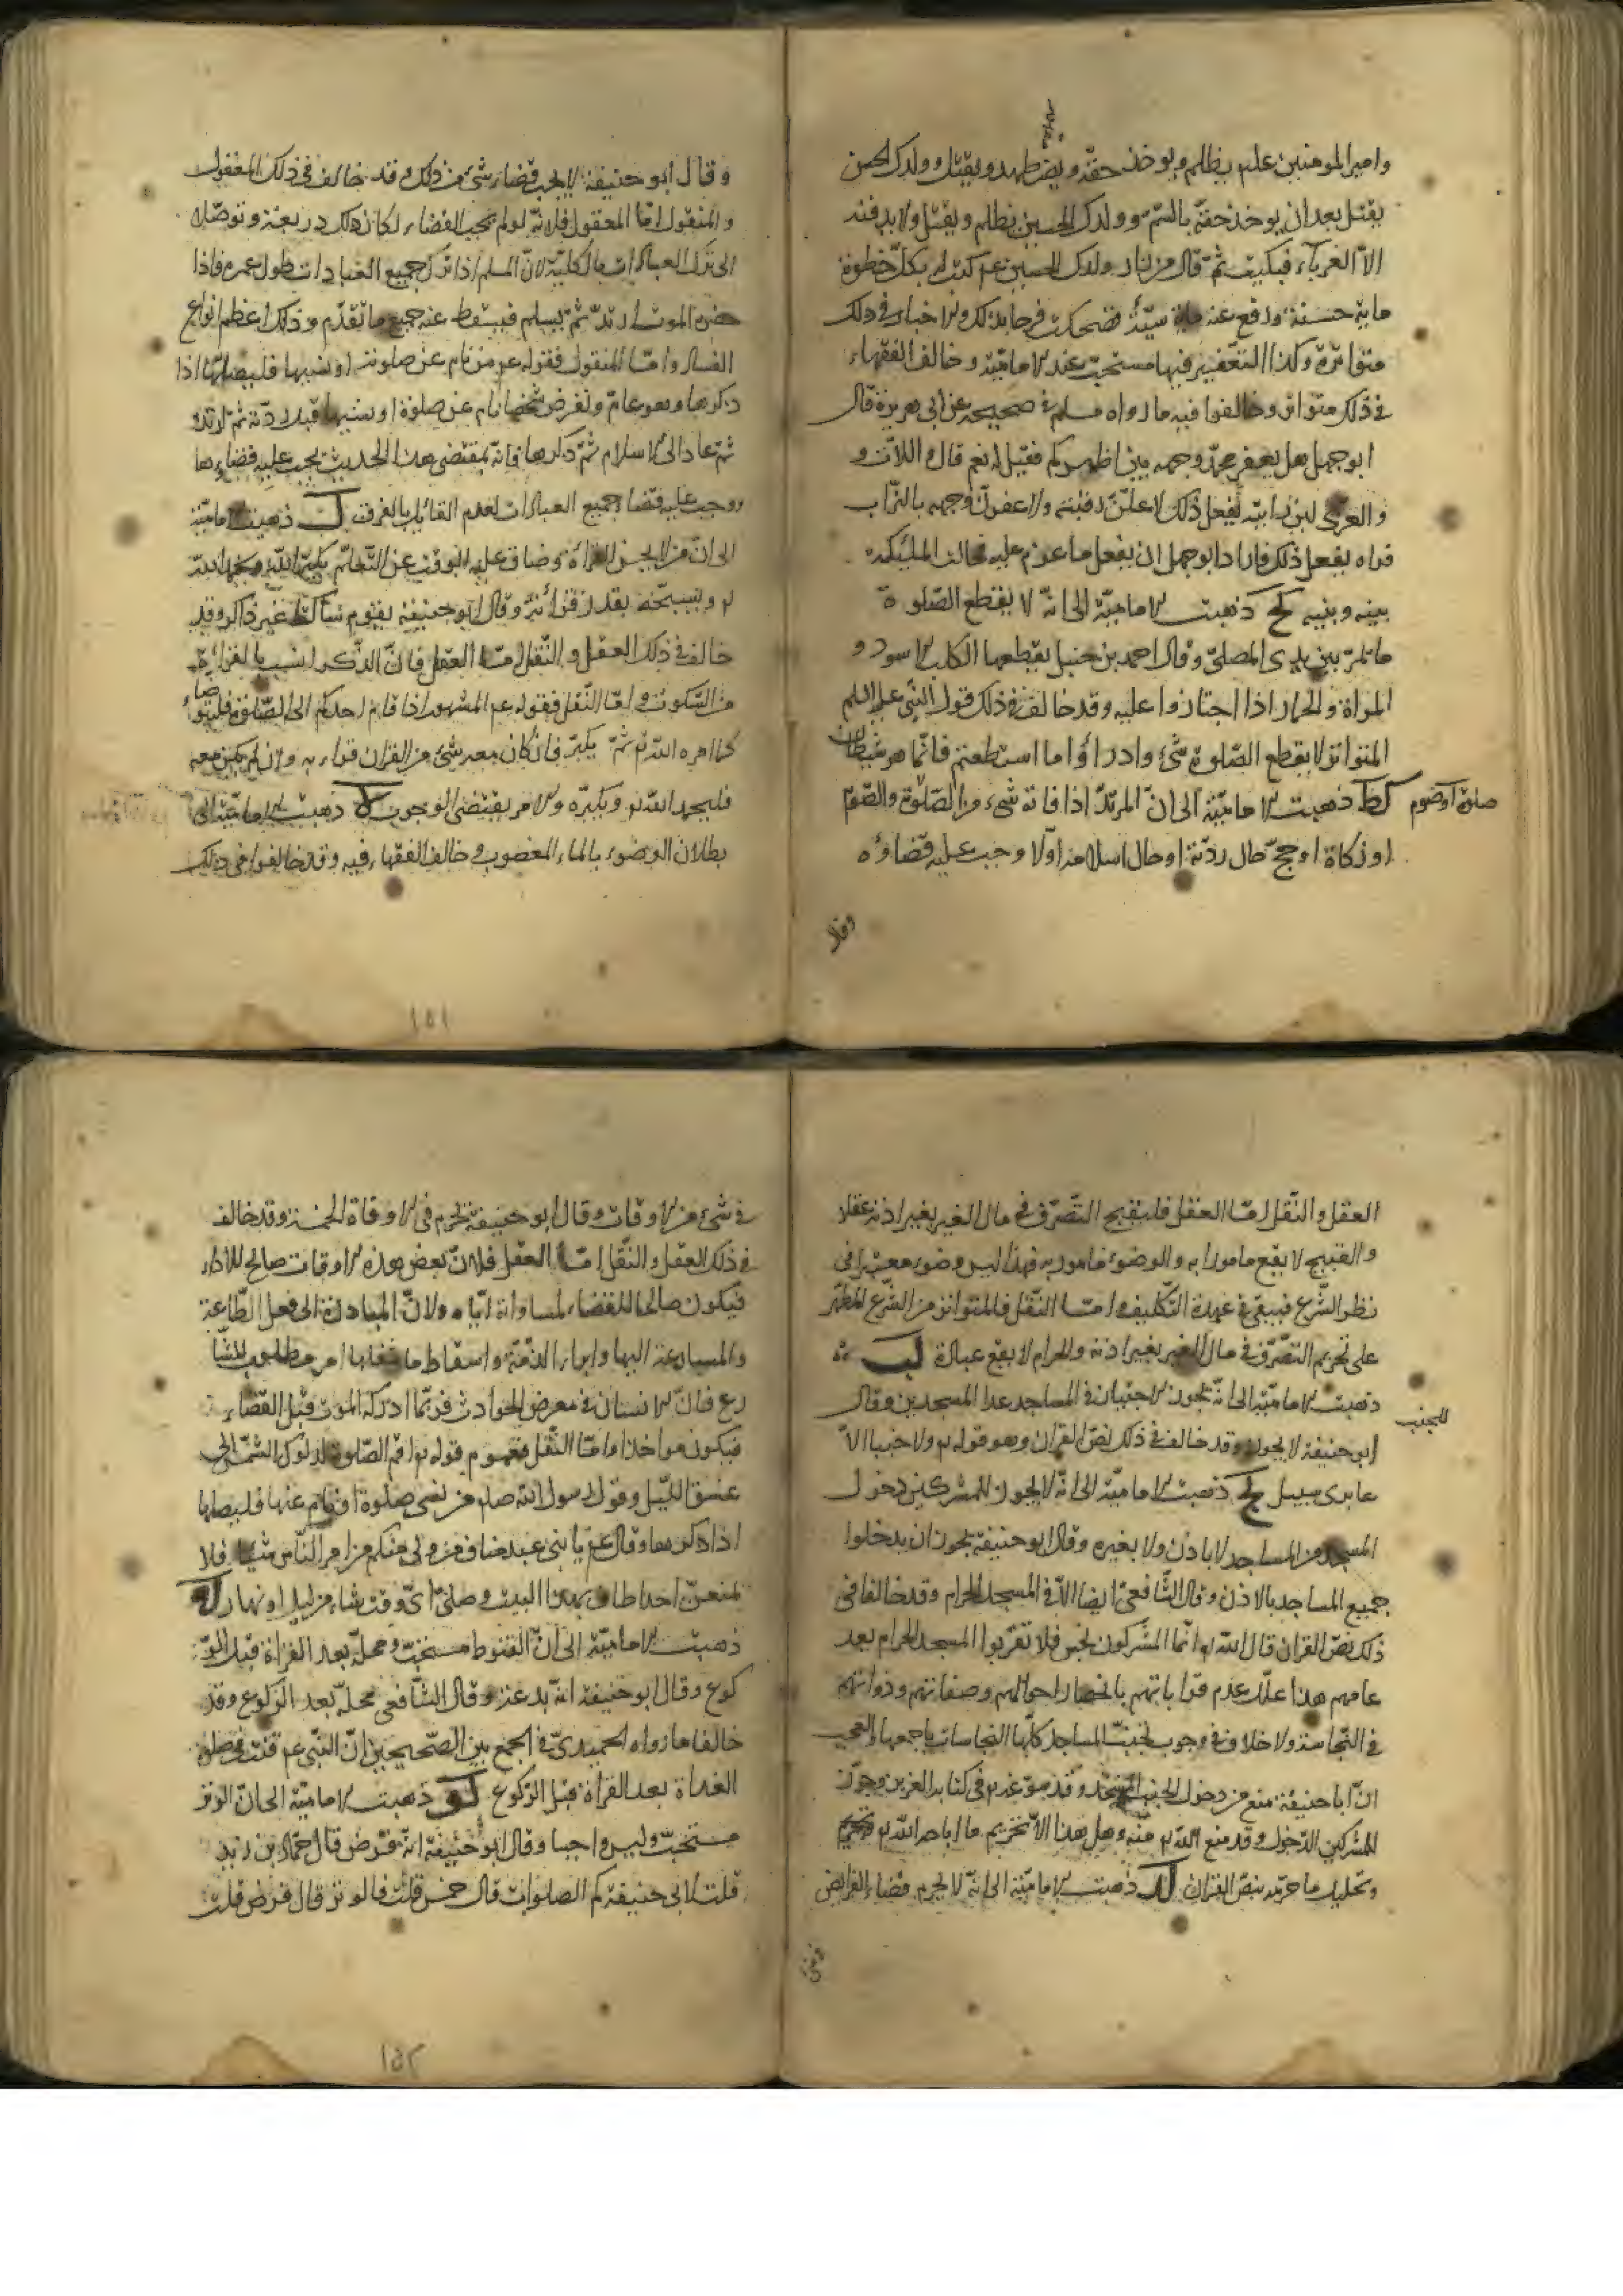 وامير المومنين عليم يظلم ويوخذ حقه ويضطهد ويقتل وولدك الحسن
يقتل بعد ان يوخذ حقه بالسم وولدك الحسين يظلم ويقتل ولا يدفنه
الا الغرباء فبكيت ثم قال من زار ولدك الحسين عم كتب له بكل خطوة
ماية حسنة ورفع عنه ماية سيئة فضحكت فرحا بذلك والاخبار في ذلك
متواترة وكذا التعفير فيها مستحب عند الامامية وخالف الفقهاء
في ذلك متواتر وخالفوا فيه ما رواه مسلم في صحيحه عن ابي هريرة قال
ابو جهل هل يعفر محمد وجهه بين اظهركم فقيل له نعم قال واللات و
والعزى لئن رايته يفعل ذلك لاعلن رقبته ولاعفرن وجهه بالتراب
فراه يفعل ذلك فاراد ابو جهل ان يفعل ما عزم عليه فحالت الملئكة
بينه وبينه كح ذهبت الامامية الى انه لا يقطع الصلوة
ما تمر بين يدي المصلي وقال احمد بن حنبل يقطعها الكلب الاسود و
المراة والحمار اذا اجتازوا عليه وقد خالف في ذلك قول النبي عليه السلم
المتواتر لا يقطع الصلوة شئ وادراؤا ما استطعتم فانما هو شيطان
كط ذهبت الامامية الى ان المرتد اذا فاته شيء من الصلوة والصوم
صلوة او صوم
او زكاة او حج حال ردته او حال اسلامه اولا وجب عليه قضاؤه
وقال
وقال ابو حنيفة لا يجب قضاء شئ من ذلك وقد خالف في ذلك المعقول
والمنقول اما المعقول فلانه لو لم يجب القضاء لكان ذلك ذريعة وتوصلا
الى ترك العبادات بالكلية لان المسلم اذا ترك جميع العبادات طول عمره فاذا
حضره الموت ارتد ثم يسلم فيسقط عنه جميع ما تقدم وذلك اعظم انواع
الفساد واما المنقول فقوله عم من نام عن صلوته او نسيها فليصلها اذا
ذكرها وهو عام ولنفرض شخصا نام عن صلوة او نسيها قبل ردته ثم ارتد
ثم عاد الى الاسلام ثم ذكرها فانه بمقتضى هذا الحديث يجب عليه قضاءها
ووجب عليه قضاء جميع العبادات لعدم القائل بالفرق ل ذهبت الامامية
الى ان من لا يحسن القراة وضاق عليه الوقت عن التعلم يكبر الله ويحمد الله
له ويسبحه بقدر قرائته وقال ابو حنيفة يقوم ساكتا غير ذاكر وقد
خالف في ذلك العقل والنقل اما العقل فان الذكر انسب بالقراءة
من السكوت واما النقل فقوله عم المشهور اذا قام احدكم الى الصلوة فليتوضا
كما امره الله ثم يكبر فان كان معه شئ من القران قراء به وان لم يكن معه
فليحمد الله له ويكبره والامر يقتضي الوجوب لا ذهبت الامامية الى
بطلان الوضوء بالماء المغصوب وخالف الفقهاء فيه وقد خالفوا في ذلك
١٥١
العقل والنقل اما العقل فلتقبيح التصرف في مال الغير بغير اذنه عقلا
والقبيح لا يقع مامورا به والوضوء مامور به فهذا ليس وضوء معتبر في
نظر الشرع فيبقى في عهدة التكليف واما النقل فالمتواتر من الشرع المطهر
على تحريم التصرف في مال الغير بغير اذنه والحرام لا يقع عبادة لب
ذهبت الامامية الى انه يجوز الاجتياز في المساجد عدا المسجدين وقال
للجنب
ابو حنيفة لا يجوز وقد خالف في ذلك نص القران وهو قوله ولا جنبا الا
عابري سبيل لج ذهبت الامامية الى انه لا يجوز للمشركين دخول
المسجد من المساجد لا باذن ولا بغيره وقال ابو حنيفة يجوز ان يدخلوا
جميع المساجد بالاذن وقال الشافعي ايضا الا في المسجد الحرام وقد خالفا في
ذلك نص القران قال الله انما المشركون نجس فلا تقربوا المسجد الحرام بعد
عامهم هذا علل عدم قرباتهم بانحصار احوالهم وصفاتهم وذواتهم
في النجاسة ولا خلاف في وجوب تجنب المساجد كلها النجاسات باجمعها والعجب
ان ابا حنيفة منع من دخول الجنب المسجد وقد سوغه في كتابه العزيز وجوز
للمشركين الدخول وقد منع الله منه وهل هذا الا تحريم ما اباحه الله
وتحليل ما حرمه بنص القران لد ذهبت الامامية الى انه لا يحرم قضاء الفرائض
في شئ من الاوقات وقال ابو حنيفة تحرم في الاوقاة الخمسة وقد خالف
في ذلك العقل والنقل اما العقل فلان بعض هذه الاوقات صالح للاداء
فيكون صالحا للقضاء لمساواته اياه ولان المبادرة الى فعل الطاعة
والمسارعة اليها وابراء الذمة واسقاط ما شغلها امر مطلوب للشا
رع فان الانسان في معرض الحوادث فربما ادركه الموت قبل القضاء
فيكون مواخذا واما النقل فعموم قوله اقم الصلوة لدلوك الشمس الى
غسق الليل وقول رسول الله صلم من نسي صلوة او نام عنها فليصلها
اذا ذكرها وقال عم يا بني عبد مناف من ولي منكم من امر الناس شيئا فلا
يمنعن احدا طاف بهذا البيت وصلى اي وقت شاء من ليل او نهار له
ذهبت الامامية الى ان القنوط مستحب ومحله بعد القراة قبل الر
كوع وقال ابو حنيفة انه بدعة وقال الشافعي محله بعد الركوع وقد
خالفا ما رواه الحميدي في الجمع بين الصحيحين ان النبي عم قنت في صلوة
الغداة بعد القراة قبل الركوع لو ذهبت الامامية الى ان الوتر
مستحب وليس واجبا وقال ابو حنيفة انه فرض قال حماد بن زيد
قلت لابي حنيفة كم الصلوات قال خمس قلت فالوتر قال فرض قلت
١٥٢